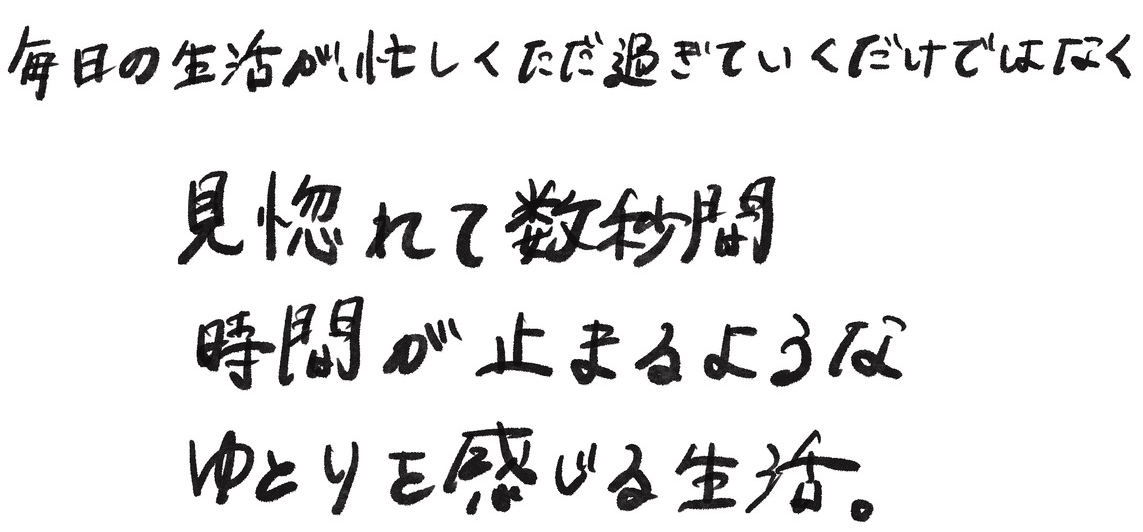 毎日の生活が忙しくただ過ぎていくだけではなく
見惚れて数秒間
時間が止まるような
ゆとりを感じる生活。